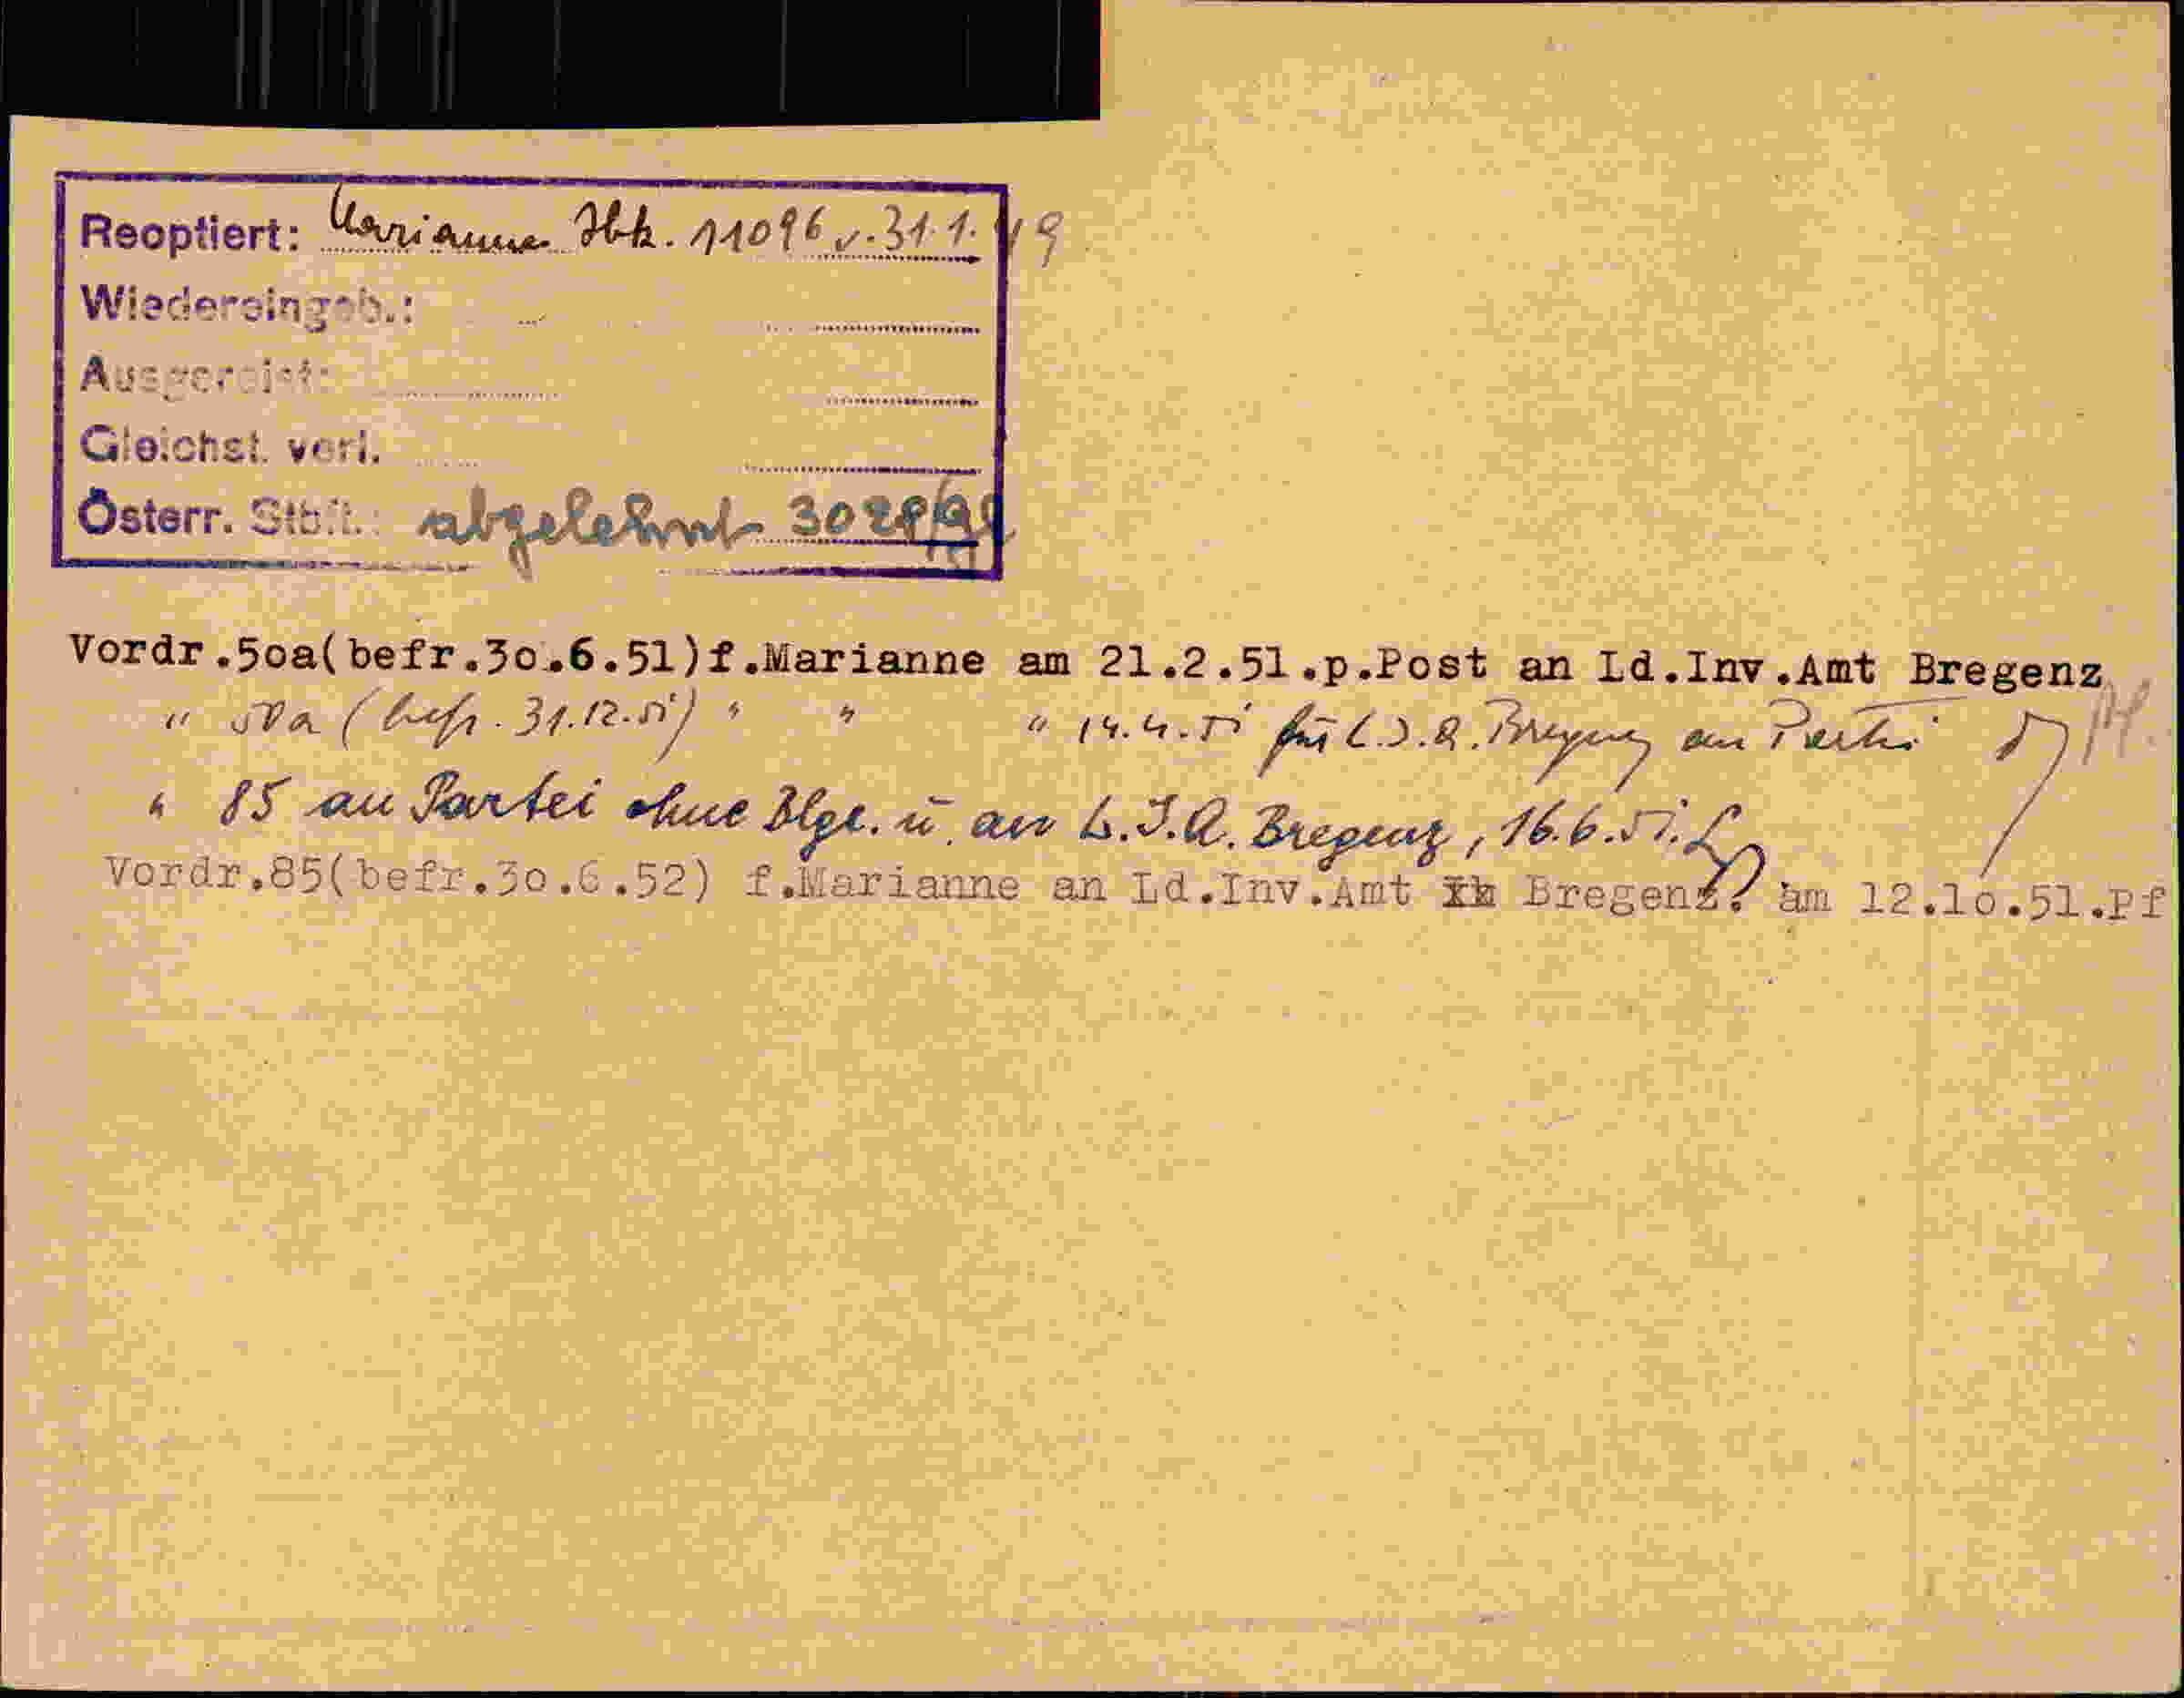 Reoptiert: Marianne Ibk. 11096 v. 31.1.49
Wiedereingeb.:
Ausgereist:
Gleichst. verl.
Österr. Stbft.: abgelehnt
Vordr.5oa(befr.3o.6.51)f.Marianne am 21.2.51.p.Post an Ld.Inv.Amt Bregenz
" 50a (befr. 31.12.51) " " " 14.4.51 für L.I.A. Bregenz an Partei
" 85 an Partei ohne Blge. u. an L.I.A. Bregenz, 16.6.51.
Vordr.85(befr.3o.6.52) f.Marianne an Ld.Inv.Amt Bregenz. am 12.1o.51.Pf